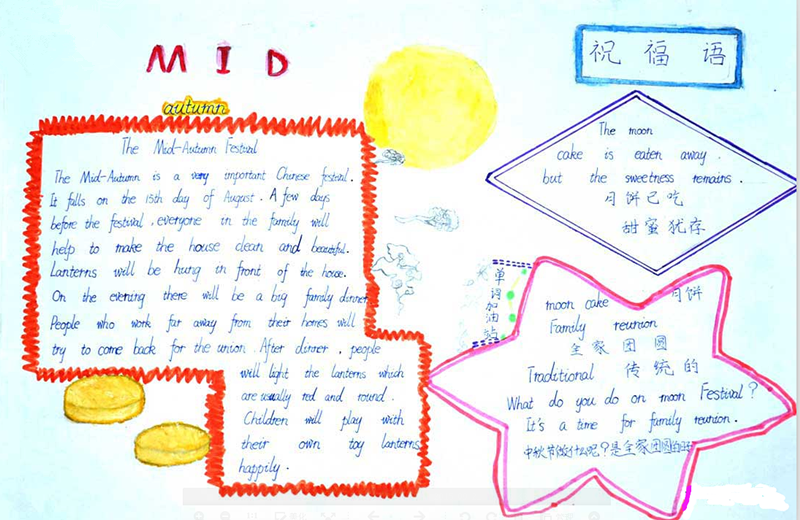 MID
autumn
The Mid-Autumn Festival
The Mid-Autumn is a very important Chinese festival.
It falls on the 15th day of August. A few days
before the festival, everyone in the family will
help to make the house clean and beautiful.
Lanterns will be hung in front of the house.
On the evening there will be a big family dinner
People who work far away from their homes will
try to come back for the union. After dinner, people
will light the lanterns which
are usually red and round.
Children will play with
their own toy lanterns
happily.
祝福语
The moon
cake is eaten away.
but the sweetness remains.
月饼已吃
甜蜜犹存
单词加油站
moon cake 月饼
Family reunion
全家团圆
Traditional 传统的
What do you do on moon Festival?
It's a time for family reunion.
中秋节做什么呢?是全家团圆的